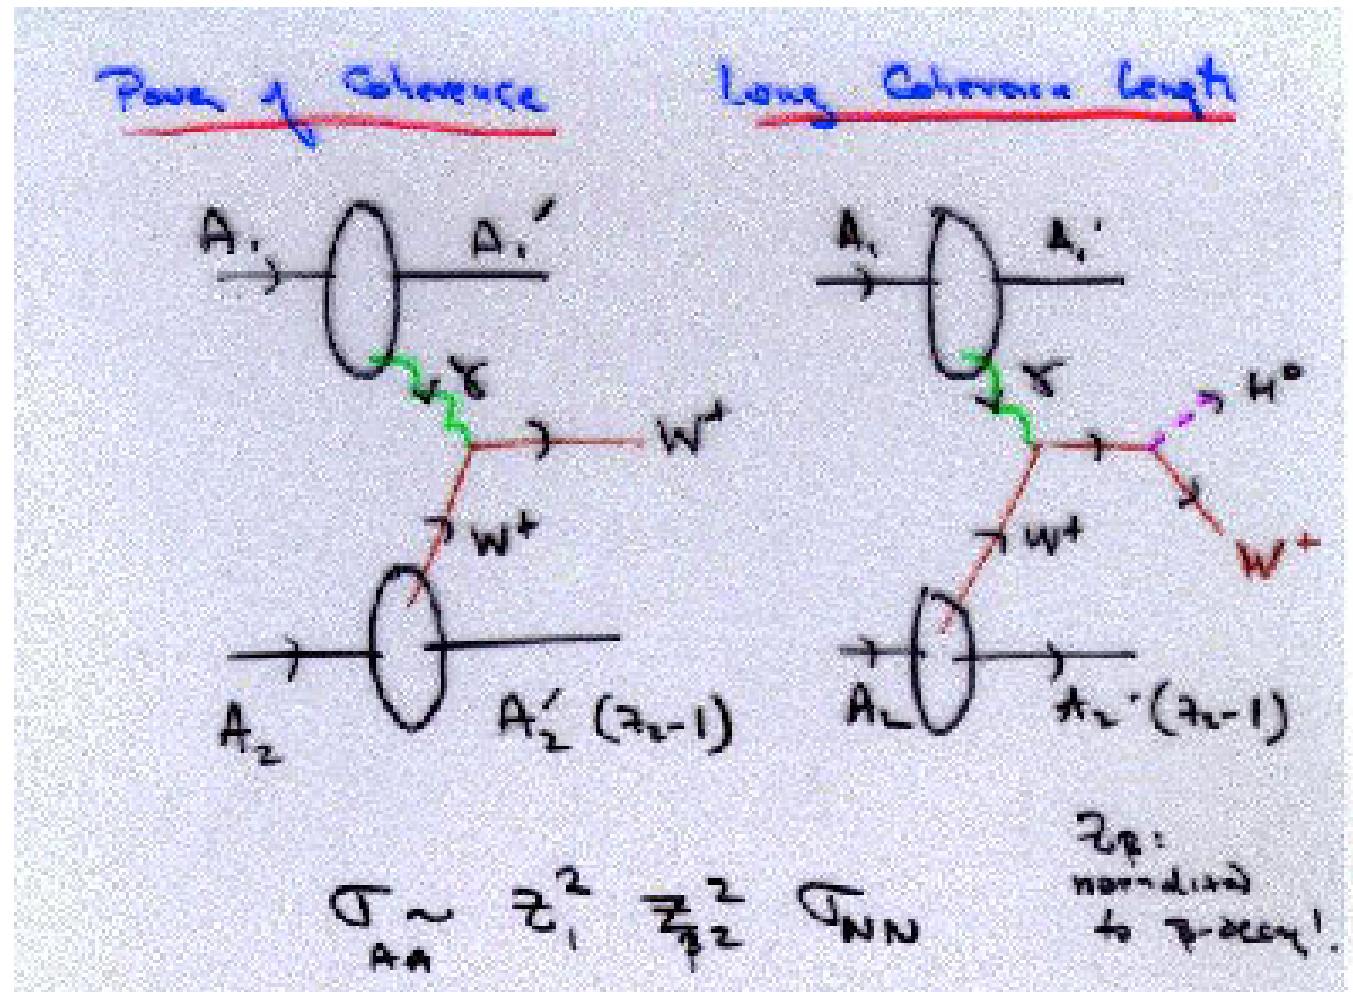 Power of Coherence
Long Coherence Length
A₁ A₁′
γ
W⁺
W⁺
A₂ A₂′ (Z₂-1)
A₁ A₁'
γ H⁰
W⁺
W⁺
A₂ A₂' (Z₂-1)
σ_AA ~ Z₁² Z_β2² σ_NN
Z_β:
normalized
to β-decay!